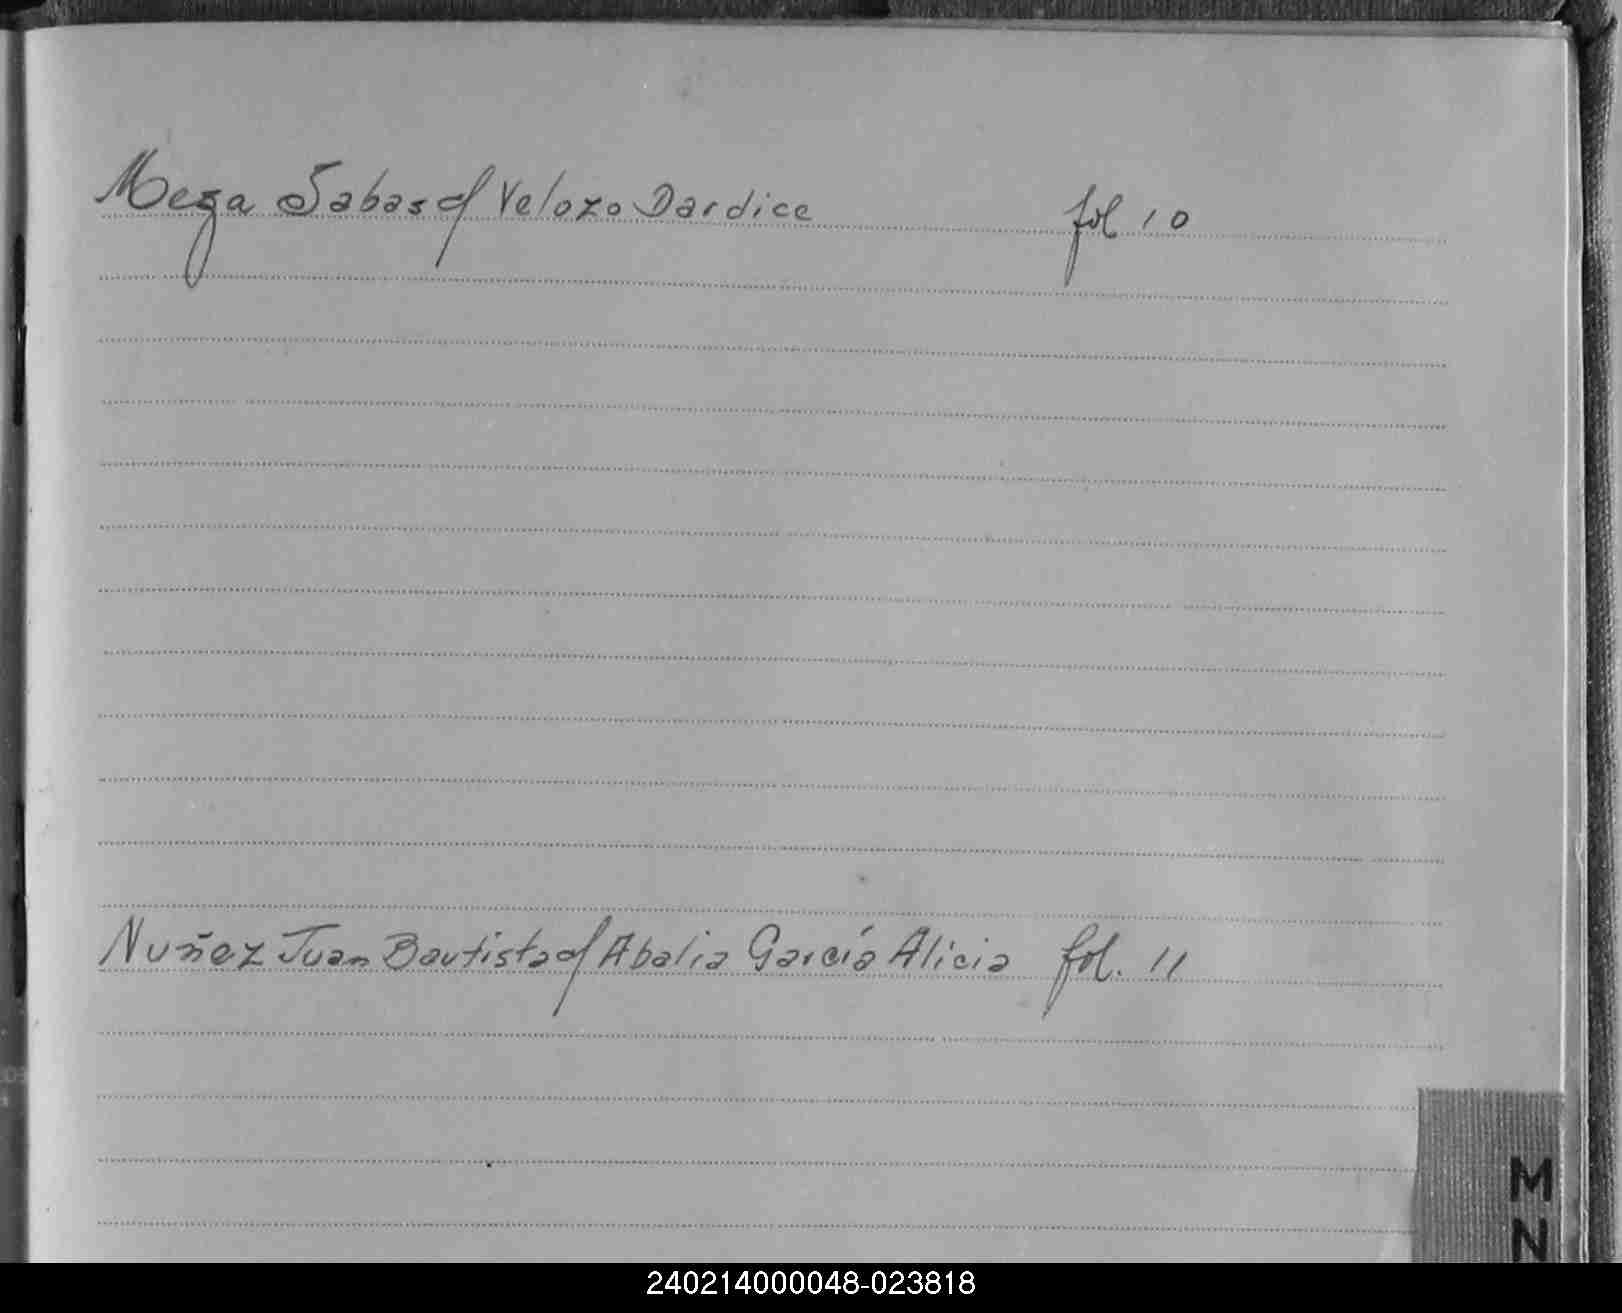 Meza Sabas c/ Velozo Dardice fol 10
Nuñez Juan Bautista c/ Abalia García Alicia fol. 11
M
N
240214000048-023818